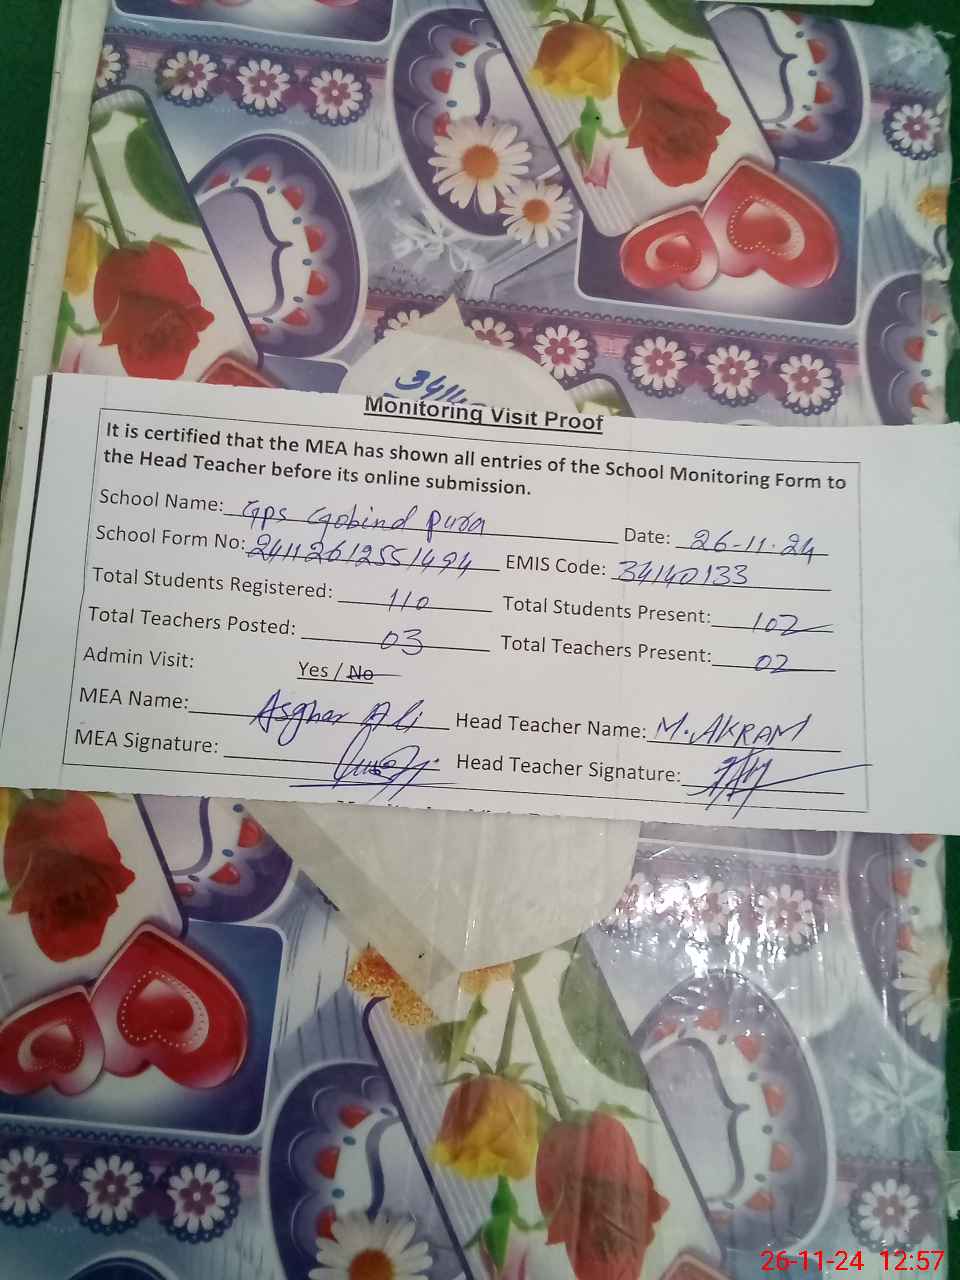 3414
Monitoring Visit Proof
It is certified that the MEA has shown all entries of the School Monitoring Form to
the Head Teacher before its online submission.
School Name: GPS Gobind Pura Date: 26-11-24
School Form No: 24112612551494 EMIS Code: 34140133
Total Students Registered: 110 Total Students Present: 102
Total Teachers Posted: 03 Total Teachers Present: 02
Admin Visit: Yes / No
MEA Name: Asghar Ali Head Teacher Name: M. AKRAM
MEA Signature: Head Teacher Signature:
26-11-24 12:57